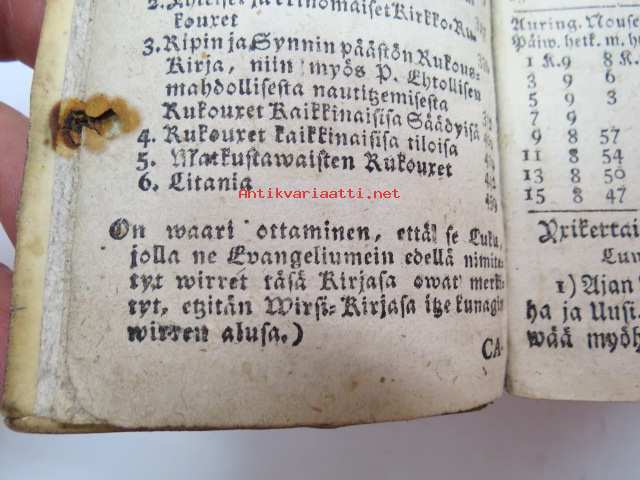 2. Yhteiset ja erinomaiset Kirkko-Ru-
kouxet
3. Ripin ja Synnin päästön Rukous-
Kirja, niin myös P. Ehtollisen
mahdollisesta nautitzemisesta
Rukouxet Kaikkinaisisa Säädyisä
4. Rukouxet kaikkinaisisa tiloisa
5. Matkustawaisten Rukouxet
6. Litania
Antikvariaatti.net
On waari ottaminen, että se Luku,
jolla ne Evangeliumein edellä nimite-
tyt wirret täsä Kirjasa owat merki-
tyt, etzitän Wirsi-Kirjasa itze kunagin
wirren alusa.)
CA-
Auring. Nouse
Päiw. hetk. m. hu
1 K. 9 8 K.
3 9 6
5 9 3
7 9
9 8 57
11 8 54
13 8 50
15 8 47
Yxikertai
Lun
1) Ajan
ha ja Uusi.
wää myöh